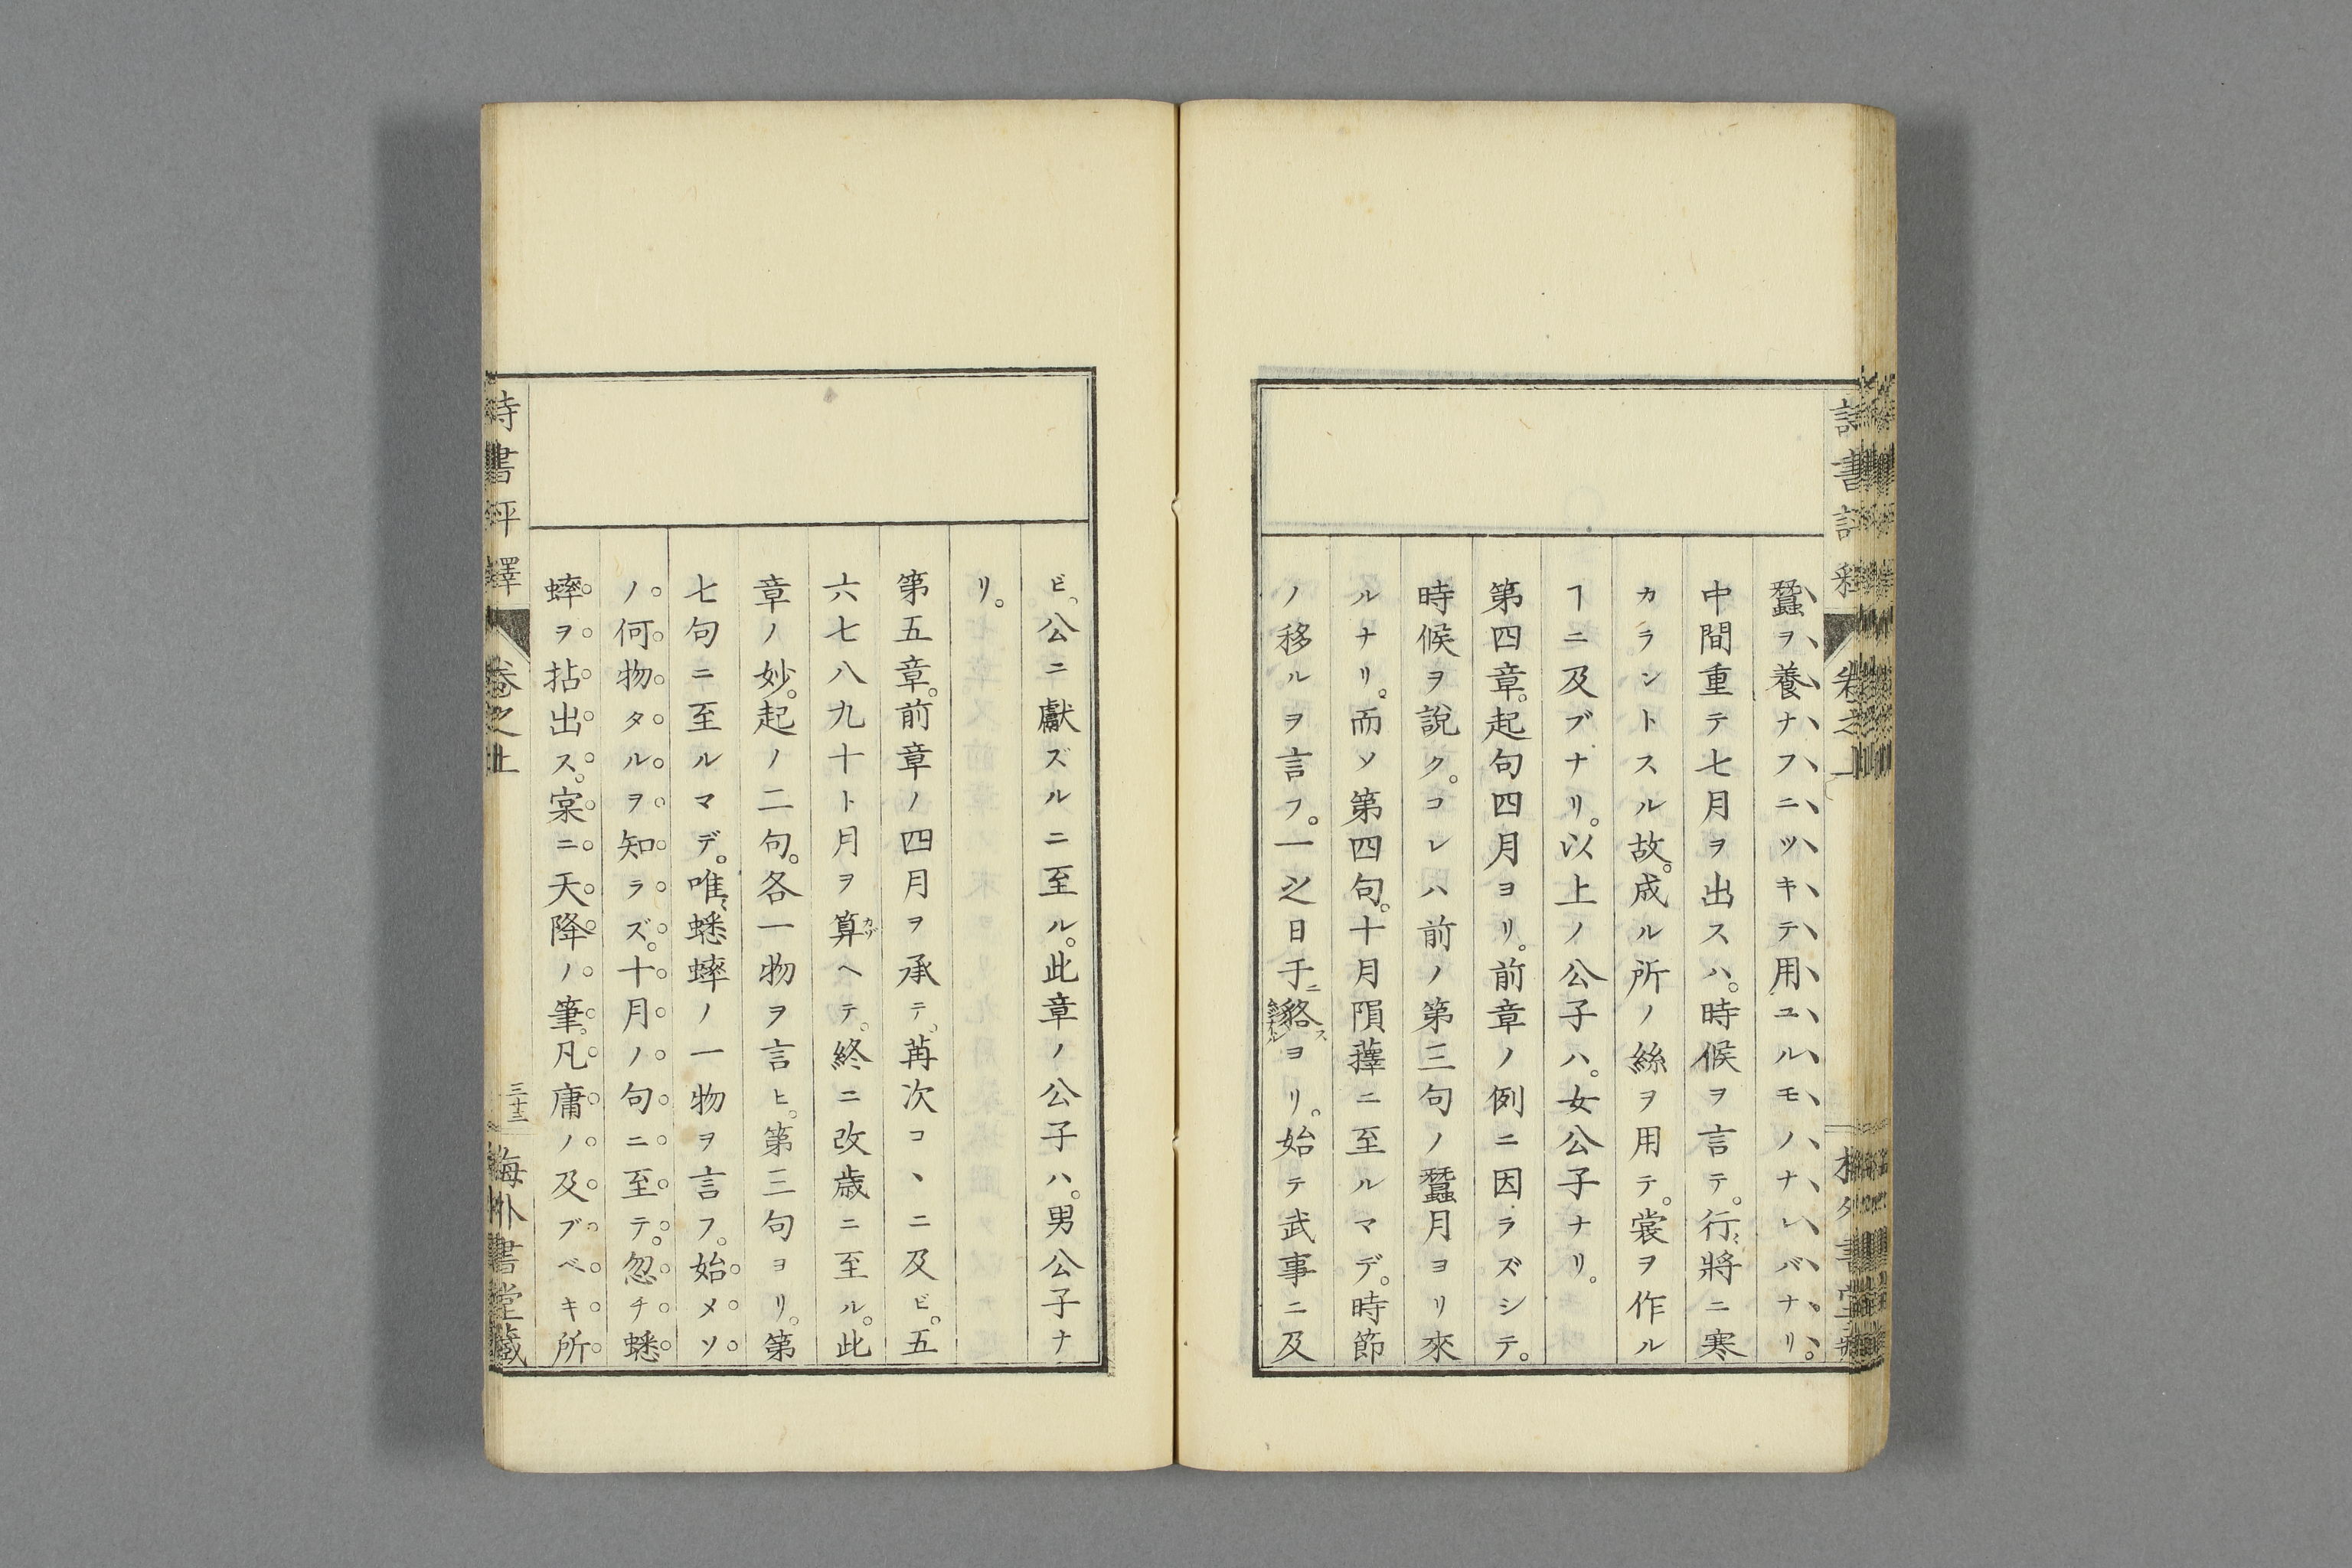 蠶ヲ養ナフニツキテ用ユルモノナレバナリ。
中間重テ七月ヲ出スハ。時候ヲ言テ。行〻將ニ寒
カラントスル故。成ル所ノ絲ヲ用テ。裳ヲ作ル
ヿニ及ブナリ。以上ノ公子ハ。女公子ナリ。
第四章。起句四月ヨリ。前章ノ例ニ因ラズシテ。
時候ヲ說ク。コレハ前ノ第三句ノ蠶月ヨリ來
ルナリ。而ソ第四句。十月隕蘀ニ至ルマデ。時節
ノ移ルヲ言フ。一之日于貉ヨリ。始テ武事ニ及
ビ、公ニ獻ズルニ至ル。此章ノ公子ハ。男公子ナ
リ。
第五章。前章ノ四月ヲ承テ、苒次コヽニ及ビ。五
六七八九十ト月ヲ算ヘテ。終ニ改歳ニ至ル。此
章ノ妙。起ノ二句。各一物ヲ言ヒ。第三句ヨリ。第
七句ニ至ルマデ。唯〻蟋蟀ノ一物ヲ言フ。始メソ
ノ何物タルヲ知ラズ。十月ノ句ニ至テ。忽チ蟋
蟀ヲ拈出ス。寔ニ天降ノ筆。凡庸ノ及ブベキ所
詩書評釋
卷之上
三十三
梅外書堂藏